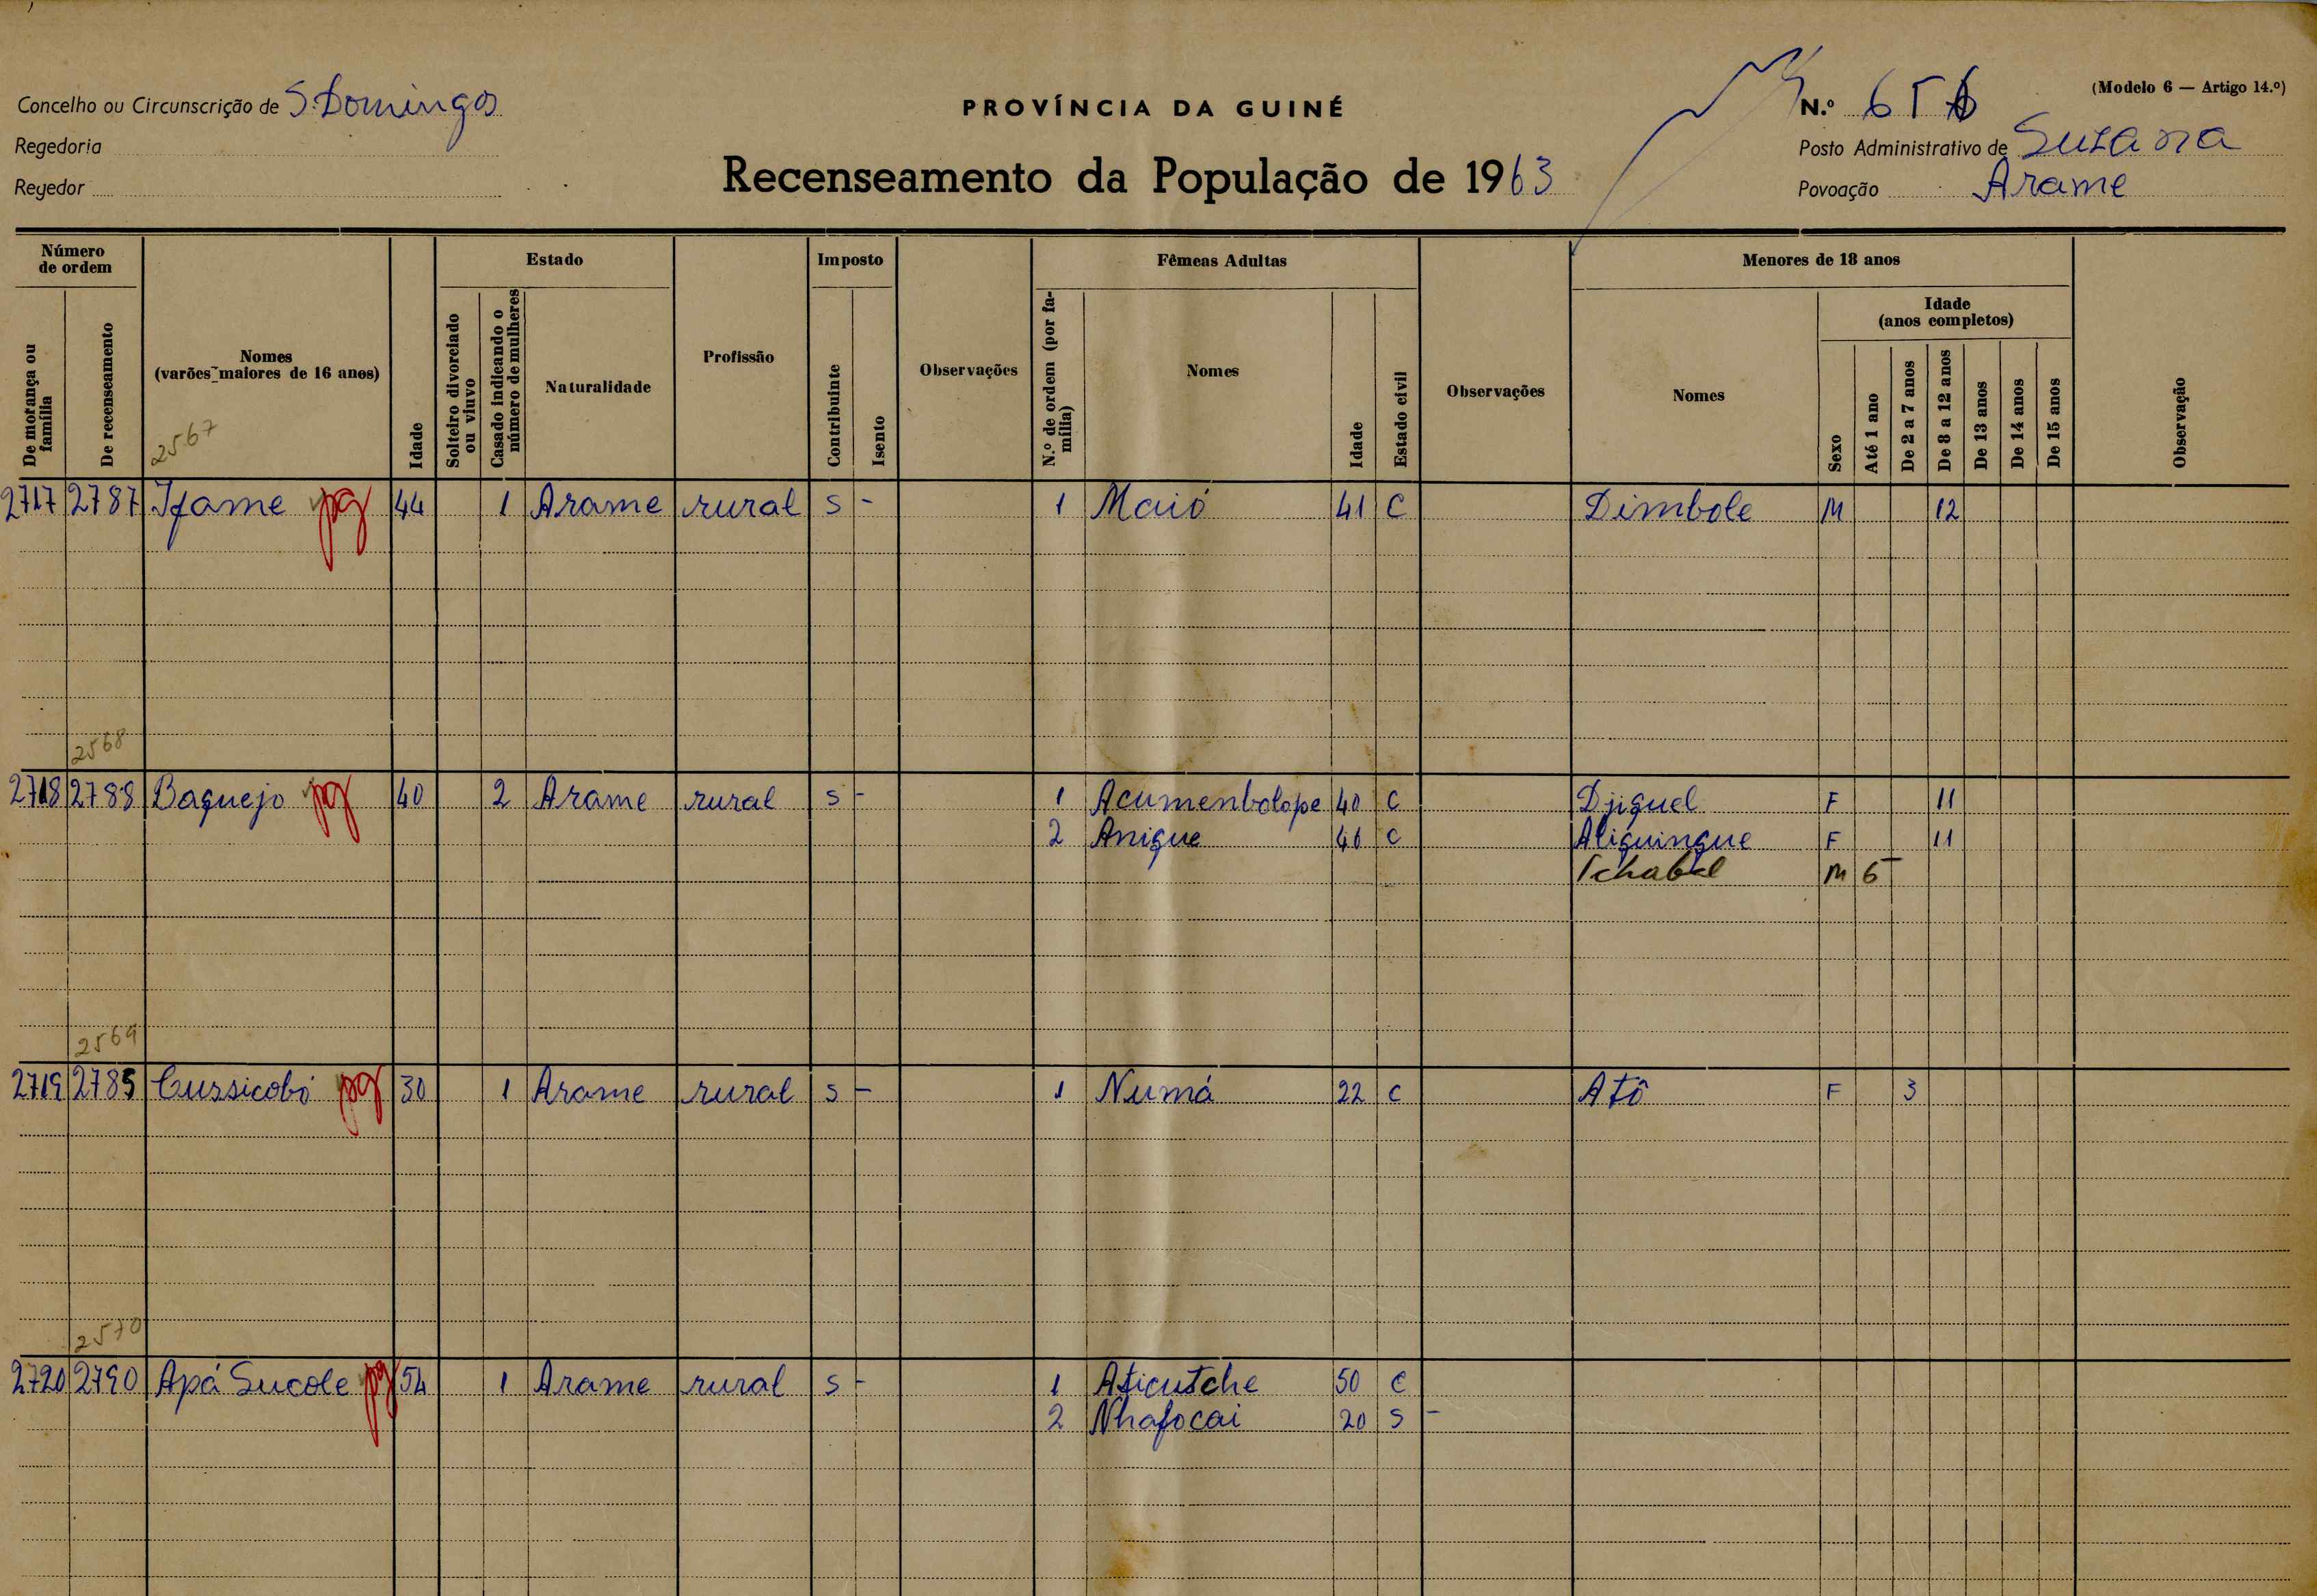 (Modelo 6 — Artigo 14.º)
Concelho ou Circunscrição de S. Domingos
PROVÍNCIA DA GUINÉ
N.º
Regedoria
Posto Administrativo de Suzana
Regedor
Recenseamento da População de 1963
Povoação Arame
Número de ordem
De morança ou família
De recenseamento
Nomes
(varões maiores de 16 anos)
2567
Idade
Estado
Solteiro divorciado ou viuvo
Casado indicando o número de mulheres
Naturalidade
Profissão
Imposto
Contribuinte
Isento
Observações
Fêmeas Adultas
N.º de ordem (por família)
Nomes
Idade
Estado civil
Observações
Menores de 18 anos
Nomes
Sexo
Idade
(anos completos)
Até 1 ano
De 2 a 7 anos
De 8 a 12 anos
De 13 anos
De 14 anos
De 15 anos
Observação
2717 2787 Ifame pg 44 1 Arame rural s - 1 Maió 41 C Dimbole M 12
2568
2718 2788 Baquejo pg 40 2 Arame rural s - 1 Acumenbolope 40 C Djiguel F 11
2 Anique 46 C Aliguingue F 11
Tchabel M 6
2569
2719 2789 Cussicobó pg 30 1 Arame rural s - 1 Numá 22 C Atô F 3
2570
2720 2790 Apá Sucole pg 54 1 Arame rural s - 1 Aticutche 50 C
2 Nhafocai 20 S -